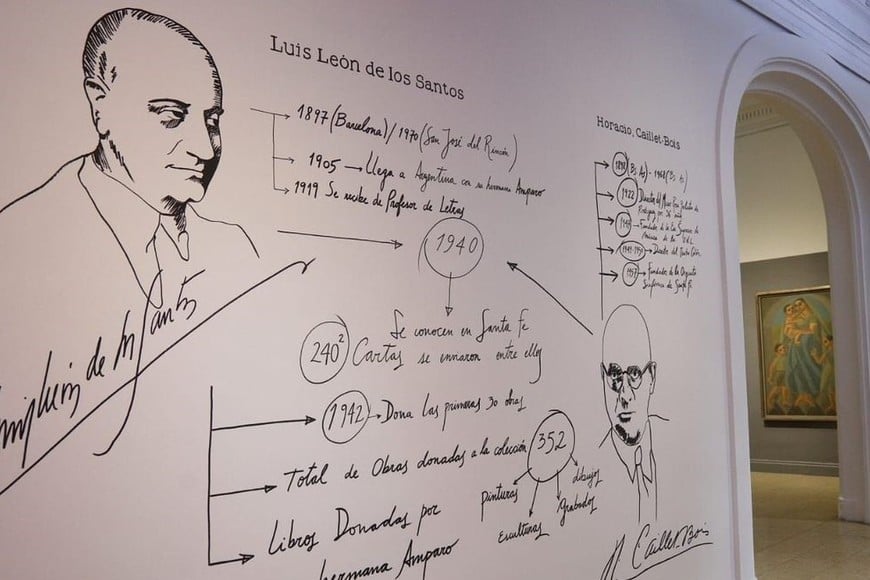 Luis León de los Santos
1897 (Barcelona) / 1970 (San José del Rincón)
1905 → Llega a Argentina con su hermana Amparo
1919 Se recibe de Profesor de Letras
1940
Se conocen en Santa Fe
240² Cartas se enviaron entre ellos
1942 → Dona las primeras 30 obras
Total de Obras donadas a la colección 352
pinturas
Esculturas
grabados
dibujos
Libros Donadas por
hermana Amparo
de los Santos
Horacio, Caillet-Bois
(Bs As) - (Bs As)
1922 Director del Museo Rosa Galisteo de
Rodríguez por
Fundador de
Música de la U.N.L.
Director del Teatro
1957 → Fundador de la Orquesta
Sinfónica de Santa Fe
H. Caillet-Bois